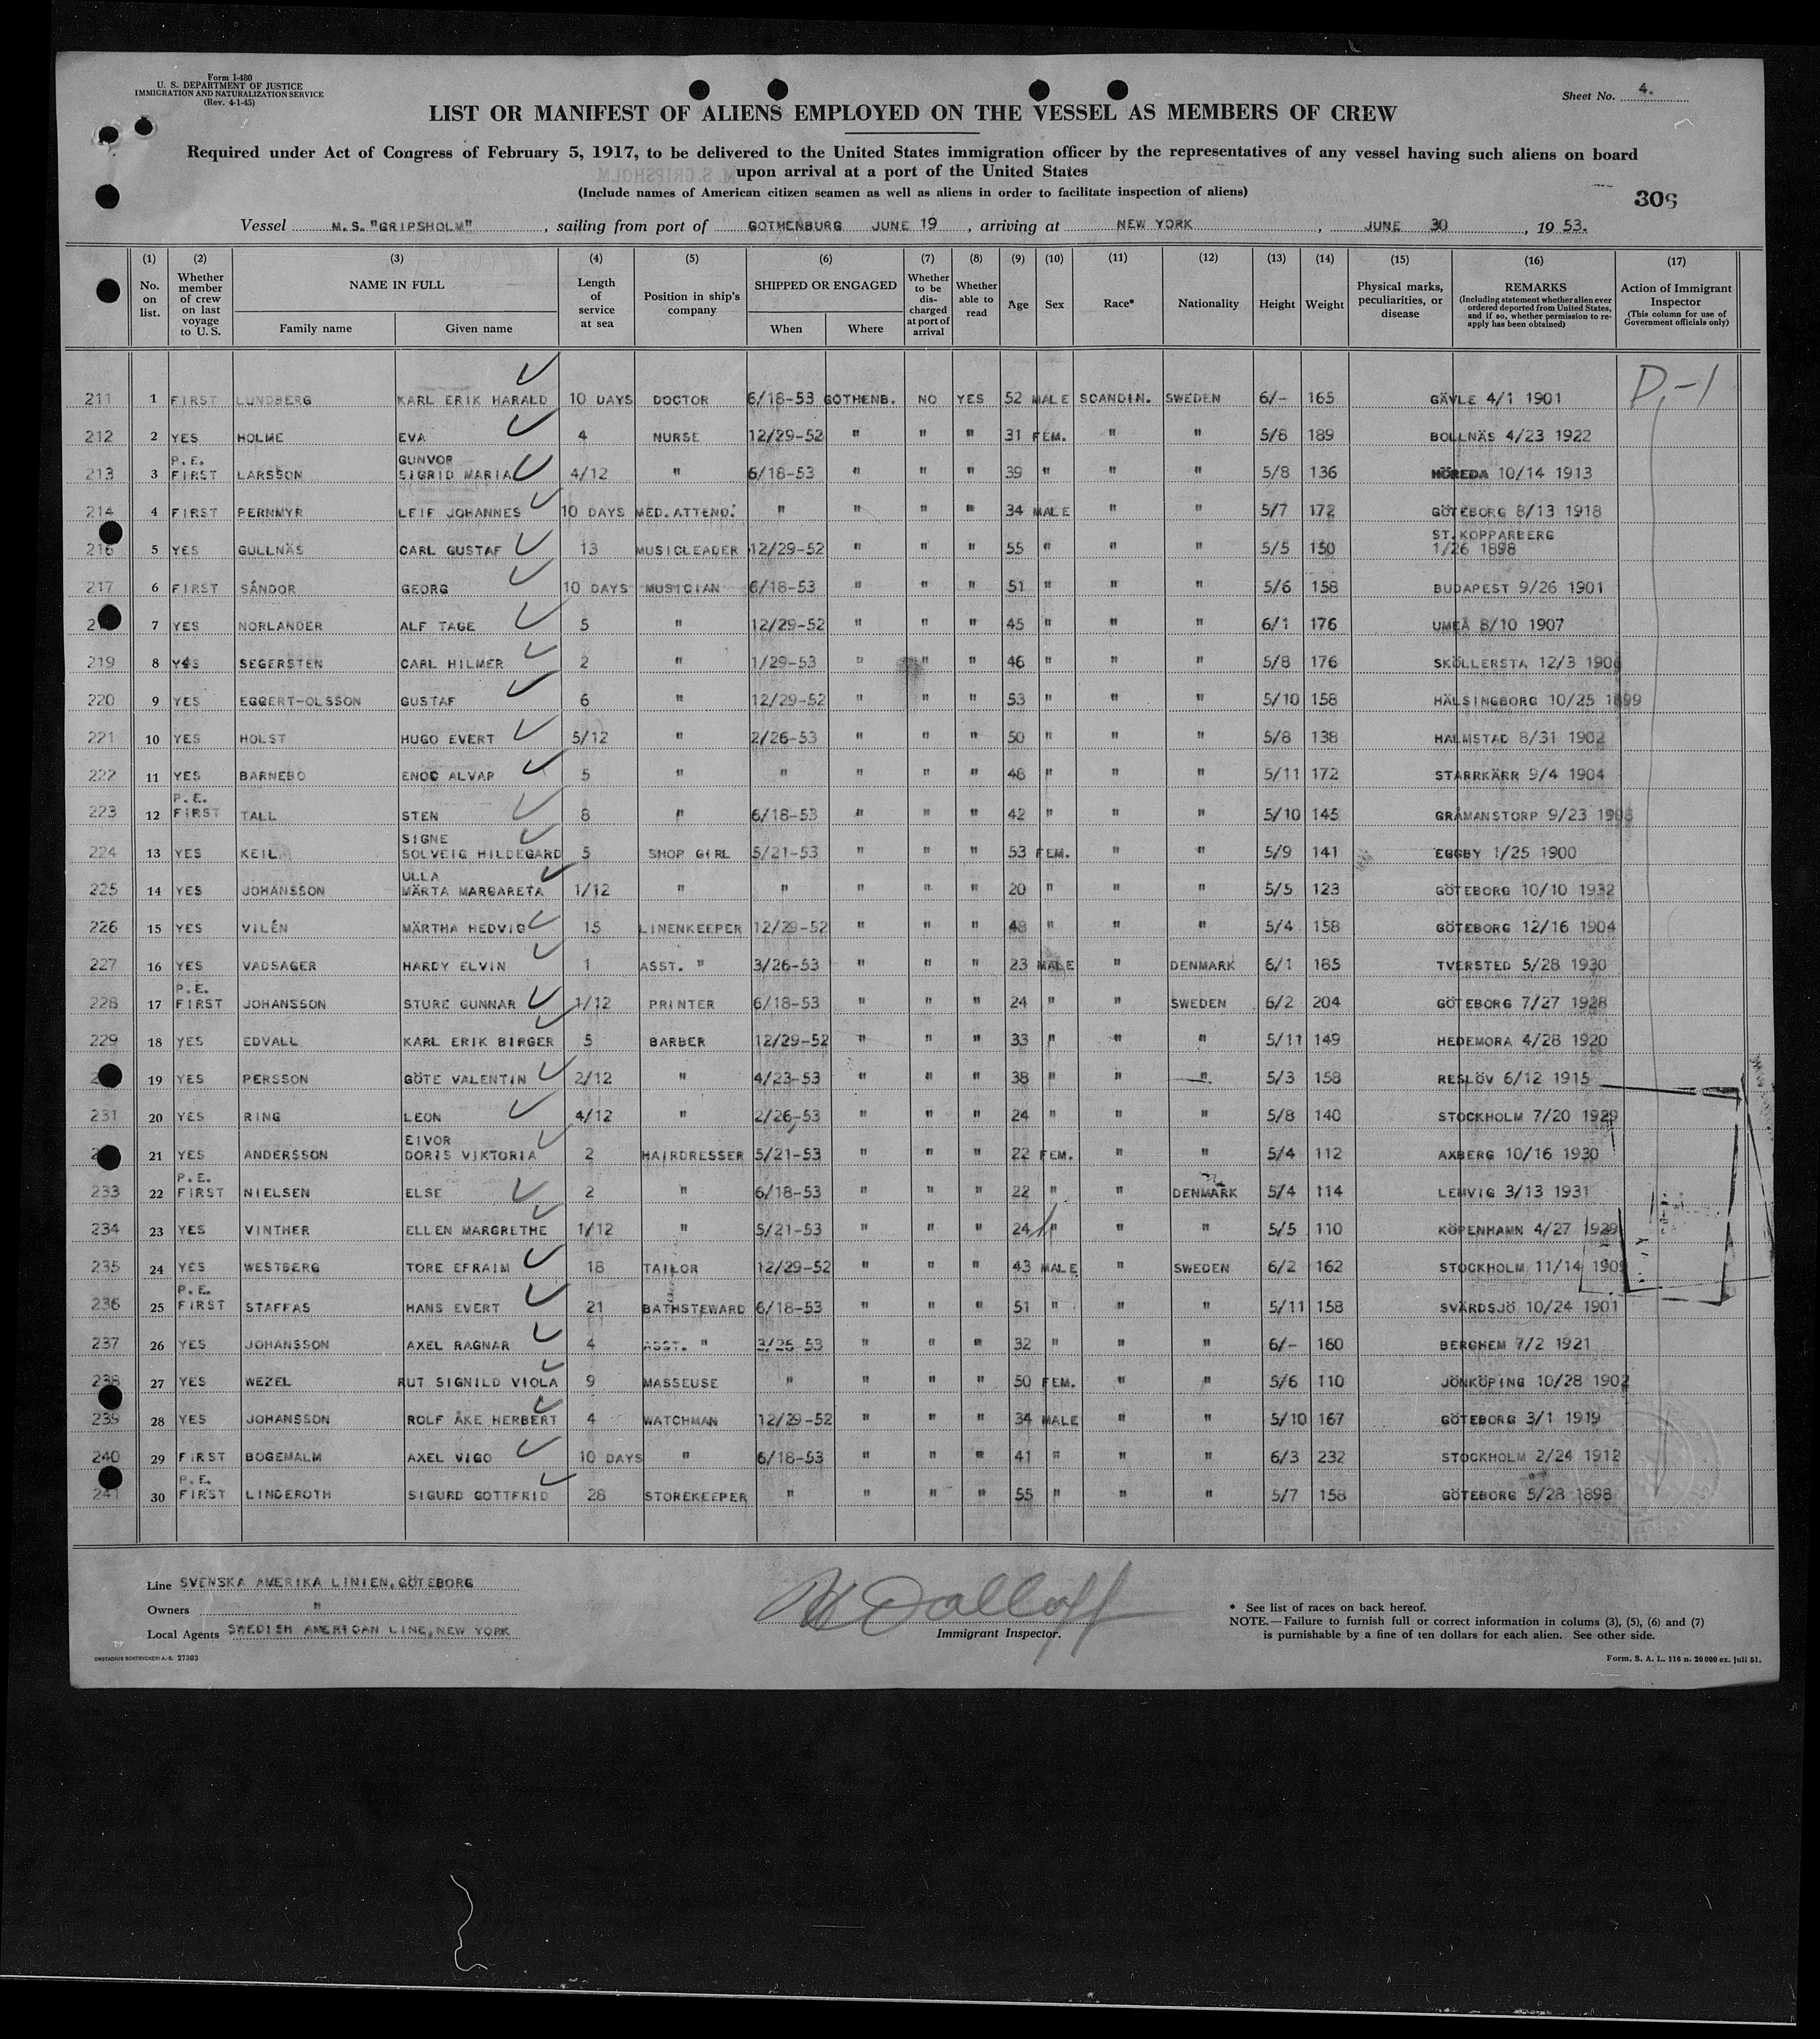 Form I-480
U. S. DEPARTMENT OF JUSTICE
IMMIGRATION AND NATURALIZATION SERVICE
(Rev. 4-1-45)
Sheet No. 4.
LIST OR MANIFEST OF ALIENS EMPLOYED ON THE VESSEL AS MEMBERS OF CREW
Required under Act of Congress of February 5, 1917, to be delivered to the United States immigration officer by the representatives of any vessel having such aliens on board
upon arrival at a port of the United States
(Include names of American citizen seamen as well as aliens in order to facilitate inspection of aliens)
Vessel M.S."GRIPSHOLM", sailing from port of GOTHENBURG JUNE 19, arriving at NEW YORK, JUNE 30, 1953.
(1) (2) (3) (4) (5) (6) (7) (8) (9) (10) (11) (12) (13) (14) (15) (16) (17)
No. on list. Whether member of crew on last voyage to U. S. NAME IN FULL Family name Given name Length of service at sea Position in ship's company SHIPPED OR ENGAGED When Where Whether to be discharged at port of arrival Whether able to read Age Sex Race* Nationality Height Weight Physical marks, peculiarities, or disease REMARKS (Including statement whether alien ever ordered deported from United States, and if so, whether permission to re-apply has been obtained) Action of Immigrant Inspector (This column for use of Government officials only)
211 1 FIRST LUNDBERG KARL ERIK HARALD 10 DAYS DOCTOR 6/18-53 GOTHENB. NO YES 52 MALE SCANDIN. SWEDEN 6/- 165 GÄVLE 4/1 1901 D,-1
212 2 YES HOLME EVA 4 NURSE 12/29-52 " " " 31 FEM. " " 5/8 189 BOLLNÄS 4/23 1922
213 3 P.E. FIRST LARSSON GUNVOR SIGRID MARIA 4/12 " 6/18-53 " " " 39 " " " 5/8 136 HÖREDA 10/14 1913
214 4 FIRST PERNMYR LEIF JOHANNES 10 DAYS MED.ATTEND. " " " " 34 MALE " " 5/7 172 GÖTEBORG 8/13 1918
216 5 YES GULLNÄS CARL GUSTAF 13 MUSICLEADER 12/29-52 " " " 55 " " " 5/5 150 ST.KOPPARBERG 1/26 1898
217 6 FIRST SÁNDOR GEORG 10 DAYS MUSICIAN 6/18-53 " " " 51 " " " 5/6 158 BUDAPEST 9/26 1901
7 YES NORLANDER ALF TAGE 5 " 12/29-52 " " " 45 " " " 6/1 176 UMEÅ 8/10 1907
219 8 YES SEGERSTEN CARL HILMER 2 " 1/29-53 " " " 46 " " " 5/8 176 SKÖLLERSTA 12/3 1906
220 9 YES EGGERT-OLSSON GUSTAF 6 " 12/29-52 " " " 53 " " " 5/10 158 HÄLSINGBORG 10/25 1899
221 10 YES HOLST HUGO EVERT 5/12 " 2/26-53 " " " 50 " " " 5/8 138 HALMSTAD 8/31 1902
222 11 YES BARNEBO ENOC ALVAR 5 " " " " " 48 " " " 5/11 172 STARRKÄRR 9/4 1904
223 12 P.E. FIRST TALL STEN 8 " 6/18-53 " " " 42 " " " 5/10 145 GRÅMANSTORP 9/23
224 13 YES KEIL SIGNE SOLVEIG HILDEGARD 5 SHOP GIRL 5/21-53 " " " 53 FEM. " " 5/9 141 EGGBY 1/25 1900
225 14 YES JOHANSSON ULLA MÄRTA MARGARETA 1/12 " " " " " 20 " " " 5/5 123 GÖTEBORG 10/10 1932
226 15 YES VILÉN MÄRTHA HEDVIG 15 LINENKEEPER 12/29-52 " " " 48 " " " 5/4 158 GÖTEBORG 12/16 1904
227 16 YES VADSAGER HARDY ELVIN 1 ASST. " 3/26-53 " " " 23 MALE " DENMARK 6/1 185 TVERSTED 5/28 1930
228 17 P.E. FIRST JOHANSSON STURE GUNNAR 1/12 PRINTER 6/18-53 " " " 24 " " SWEDEN 6/2 204 GÖTEBORG 7/27 1928
229 18 YES EDVALL KARL ERIK BIRGER 5 BARBER 12/29-52 " " " 33 " " " 5/11 149 HEDEMORA 4/28 1920
19 YES PERSSON GÖTE VALENTIN 2/12 " 4/23-53 " " " 38 " " " 5/3 158 RESLÖV 6/12 1915
231 20 YES RING LEON 4/12 " 2/26-53 " " " 24 " " " 5/8 140 STOCKHOLM 7/20 1929
21 YES ANDERSSON EIVOR DORIS VIKTORIA 2 HAIRDRESSER 5/21-53 " " " 22 FEM. " " 5/4 112 AXBERG 10/16 1930
233 22 P.E. FIRST NIELSEN ELSE 2 " 6/18-53 " " " 22 " " DENMARK 5/4 114 LEMVIG 3/13 1931
234 23 YES VINTHER ELLEN MARGRETHE 1/12 " 5/21-53 " " " 24 " " " 5/5 110 KÖPENHAMN 4/27 1929
235 24 YES WESTBERG TORE EFRAIM 18 TAILOR 12/29-52 " " " 43 MALE " SWEDEN 6/2 162 STOCKHOLM 11/14 1909
236 25 P.E. FIRST STAFFAS HANS EVERT 21 BATHSTEWARD 6/18-53 " " " 51 " " " 5/11 158 SVÄRDSJÖ 10/24 1901
237 26 YES JOHANSSON AXEL RAGNAR 4 ASST. " 3/26-53 " " " 32 " " " 6/- 160 BERGHEM 7/2 1921
238 27 YES WEZEL RUT SIGNILD VIOLA 9 MASSEUSE " " " " 50 FEM. " " 5/6 110 JÖNKÖPING 10/28 1902
239 28 YES JOHANSSON ROLF ÅKE HERBERT 4 WATCHMAN 12/29-52 " " " 34 MALE " " 5/10 167 GÖTEBORG 3/1 1919
240 29 FIRST BOGEMALM AXEL VIGO 10 DAYS " 6/18-53 " " " 41 " " " 6/3 232 STOCKHOLM 2/24 1912
241 30 P.E. FIRST LINDEROTH SIGURD GOTTFRID 28 STOREKEEPER " " " " 55 " " " 5/7 158 GÖTEBORG 5/28 1898
Line SVENSKA AMERIKA LINIEN, GÖTEBORG
Owners "
Local Agents SWEDISH AMERICAN LINE, NEW YORK
Immigrant Inspector.
* See list of races on back hereof.
NOTE.—Failure to furnish full or correct information in colums (3), (5), (6) and (7)
is punishable by a fine of ten dollars for each alien. See other side.
27303
Form. S. A. L. 116 n. 20 000 ex. Juli 51.